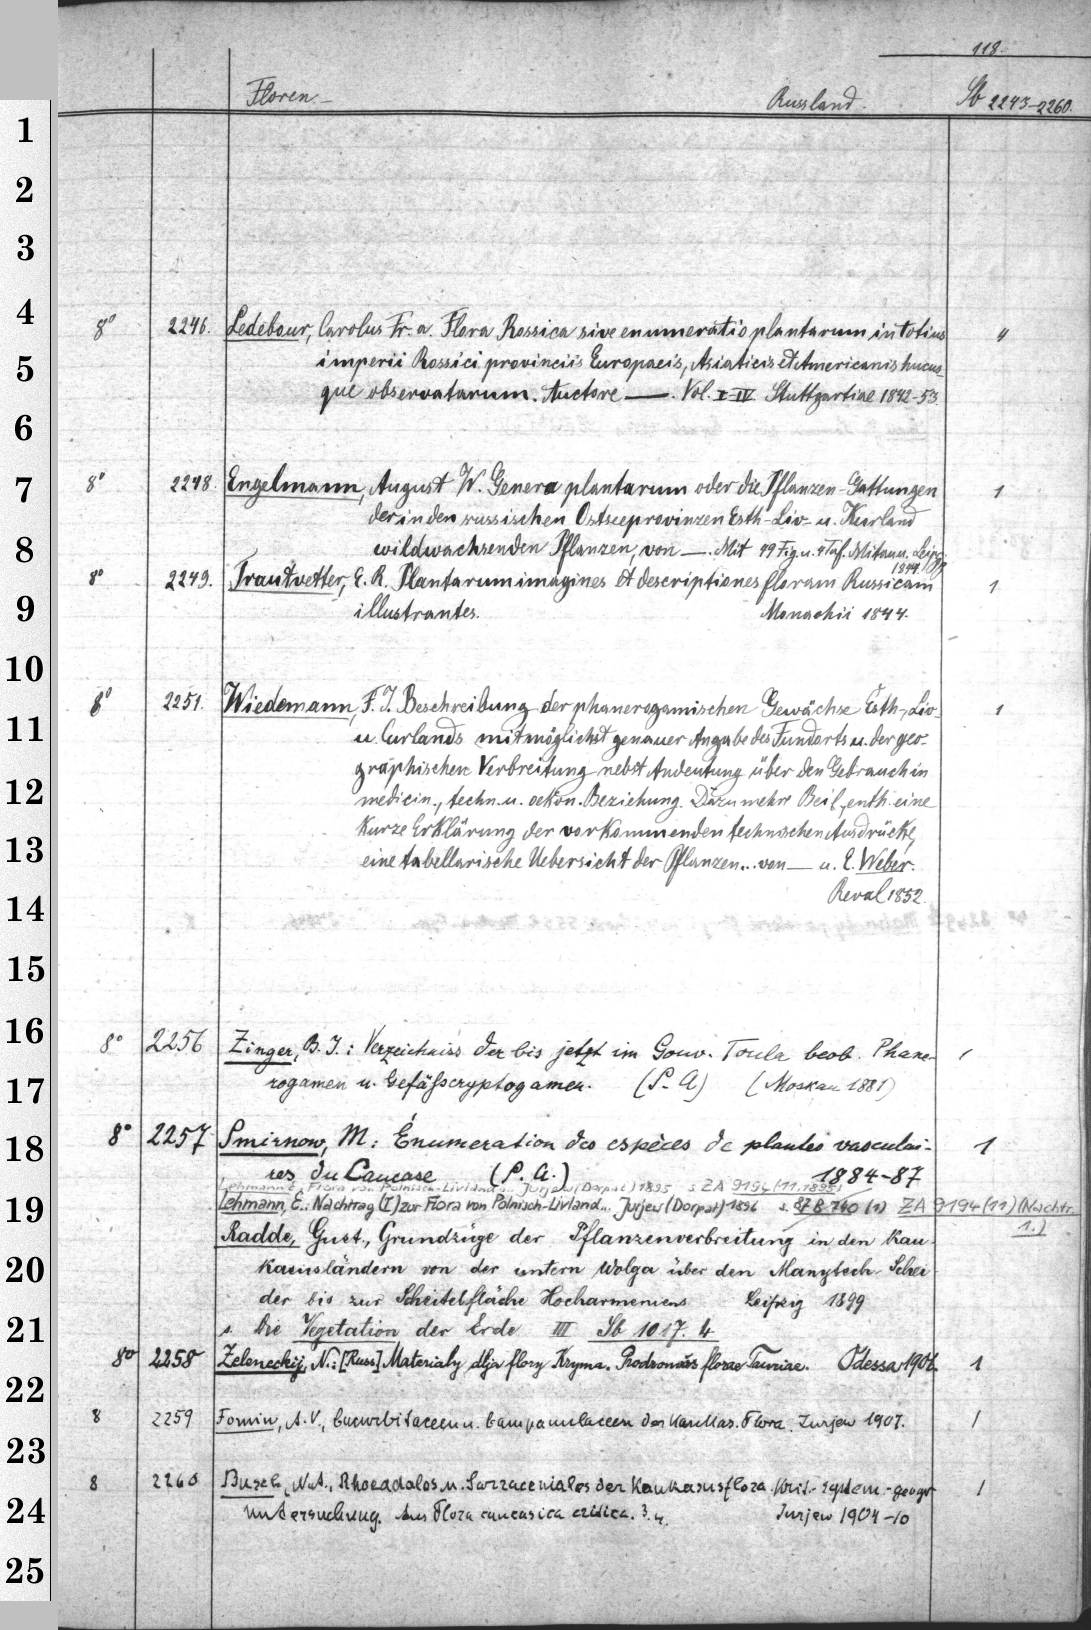 118.
Floren.– Russland. Sb 2243–2260.
1
2
3
4
8° 2246. Ledebour, Carolus Fr. a. Flora Rossica sive enumeratio plantarum in totius 4
5
imperii Rossici provinciis Europaeis, Asiaticis et Americanis hucus-
que observatarum. Auctore —. Vol. I–IV Stuttgartiae 1842–53.
6
7
8° 2248. Engelmann, August W. Genera plantarum oder die Pflanzen-Gattungen 1
der in den russischen Ostseeprovinzen Esth- Liv- u. Kurland
8
wildwachsenden Pflanzen, von —. Mit 49 Fig. u. 4 Taf. Mitau u. Leipz.
1844.
8° 2249. Trautvetter, E. R. Plantarum imagines et descriptiones floram Russicam 1
9
illustrantes. Monachii 1844.
10
8° 2251. Wiedemann, F. J. Beschreibung der phanerogamischen Gewächse Esth-, Liv- 1
11
u. Curlands mit möglichst genauer Angabe des Fundorts u. der geo-
graphischen Verbreitung nebst Andeutung über den Gebrauch in
12
medicin., techn. u. oekon. Beziehung. Dazu mehr Beil., enth. eine
kurze Erklärung der vorkommenden technischen Ausdrücke,
13
eine tabellarische Uebersicht der Pflanzen... von — u. E. Weber.
Reval 1852.
14
15
16
8° 2256 Zinger, B. J.: Verzeichniss der bis jetzt im Gouv. Toula beob. Phane- 1
17
rogamen u. Gefässcryptogamen. (S.-A) (Moskau 1881)
18
8° 2257 Smirnow, M: Énumeration des espèces de plantes vasculai- 1
res du Caucase (S. A.) 1884–87
Lehmann E. Flora von Polnisch-Livland... Jurjew (Dorpat) 1895 s. ZA 9194 (11.1895)
19
Lehmann, E.: Nachtrag (I) zur Flora von Polnisch-Livland... Jurjew (Dorpat) 1896 s. 87 B 740 (1) ZA 9194 (11) (Nachtr.
1.)
Radde, Gust., Grundzüge der Pflanzenverbreitung in den Kau-
20
kasusländern von der untern Wolga über den Manytsch-Schei-
der bis zur Scheitelfläche Hocharmeniens Leipzig 1899
21
s. Die Vegetation der Erde III Sb 1017. 4
8° 2258 Zeleneckij, N.: [Russ] Materialy dlja flory Kryma. Prodromus florae Tauriae. Odessa 1906. 1
22
8 2259 Fomin, A. V., Cucurbitaceen u. Campanulaceen der Kaukas. Flora. Jurjew 1907. 1
23
8 2260 Busch, N. A., Rhoeadales u. Sarraceniales der Kaukasusflora. Krit.-system.-geogr. 1
24
Untersuchung. Aus Flora caucasica critica. 3. 4. Jurjew 1904–10
25